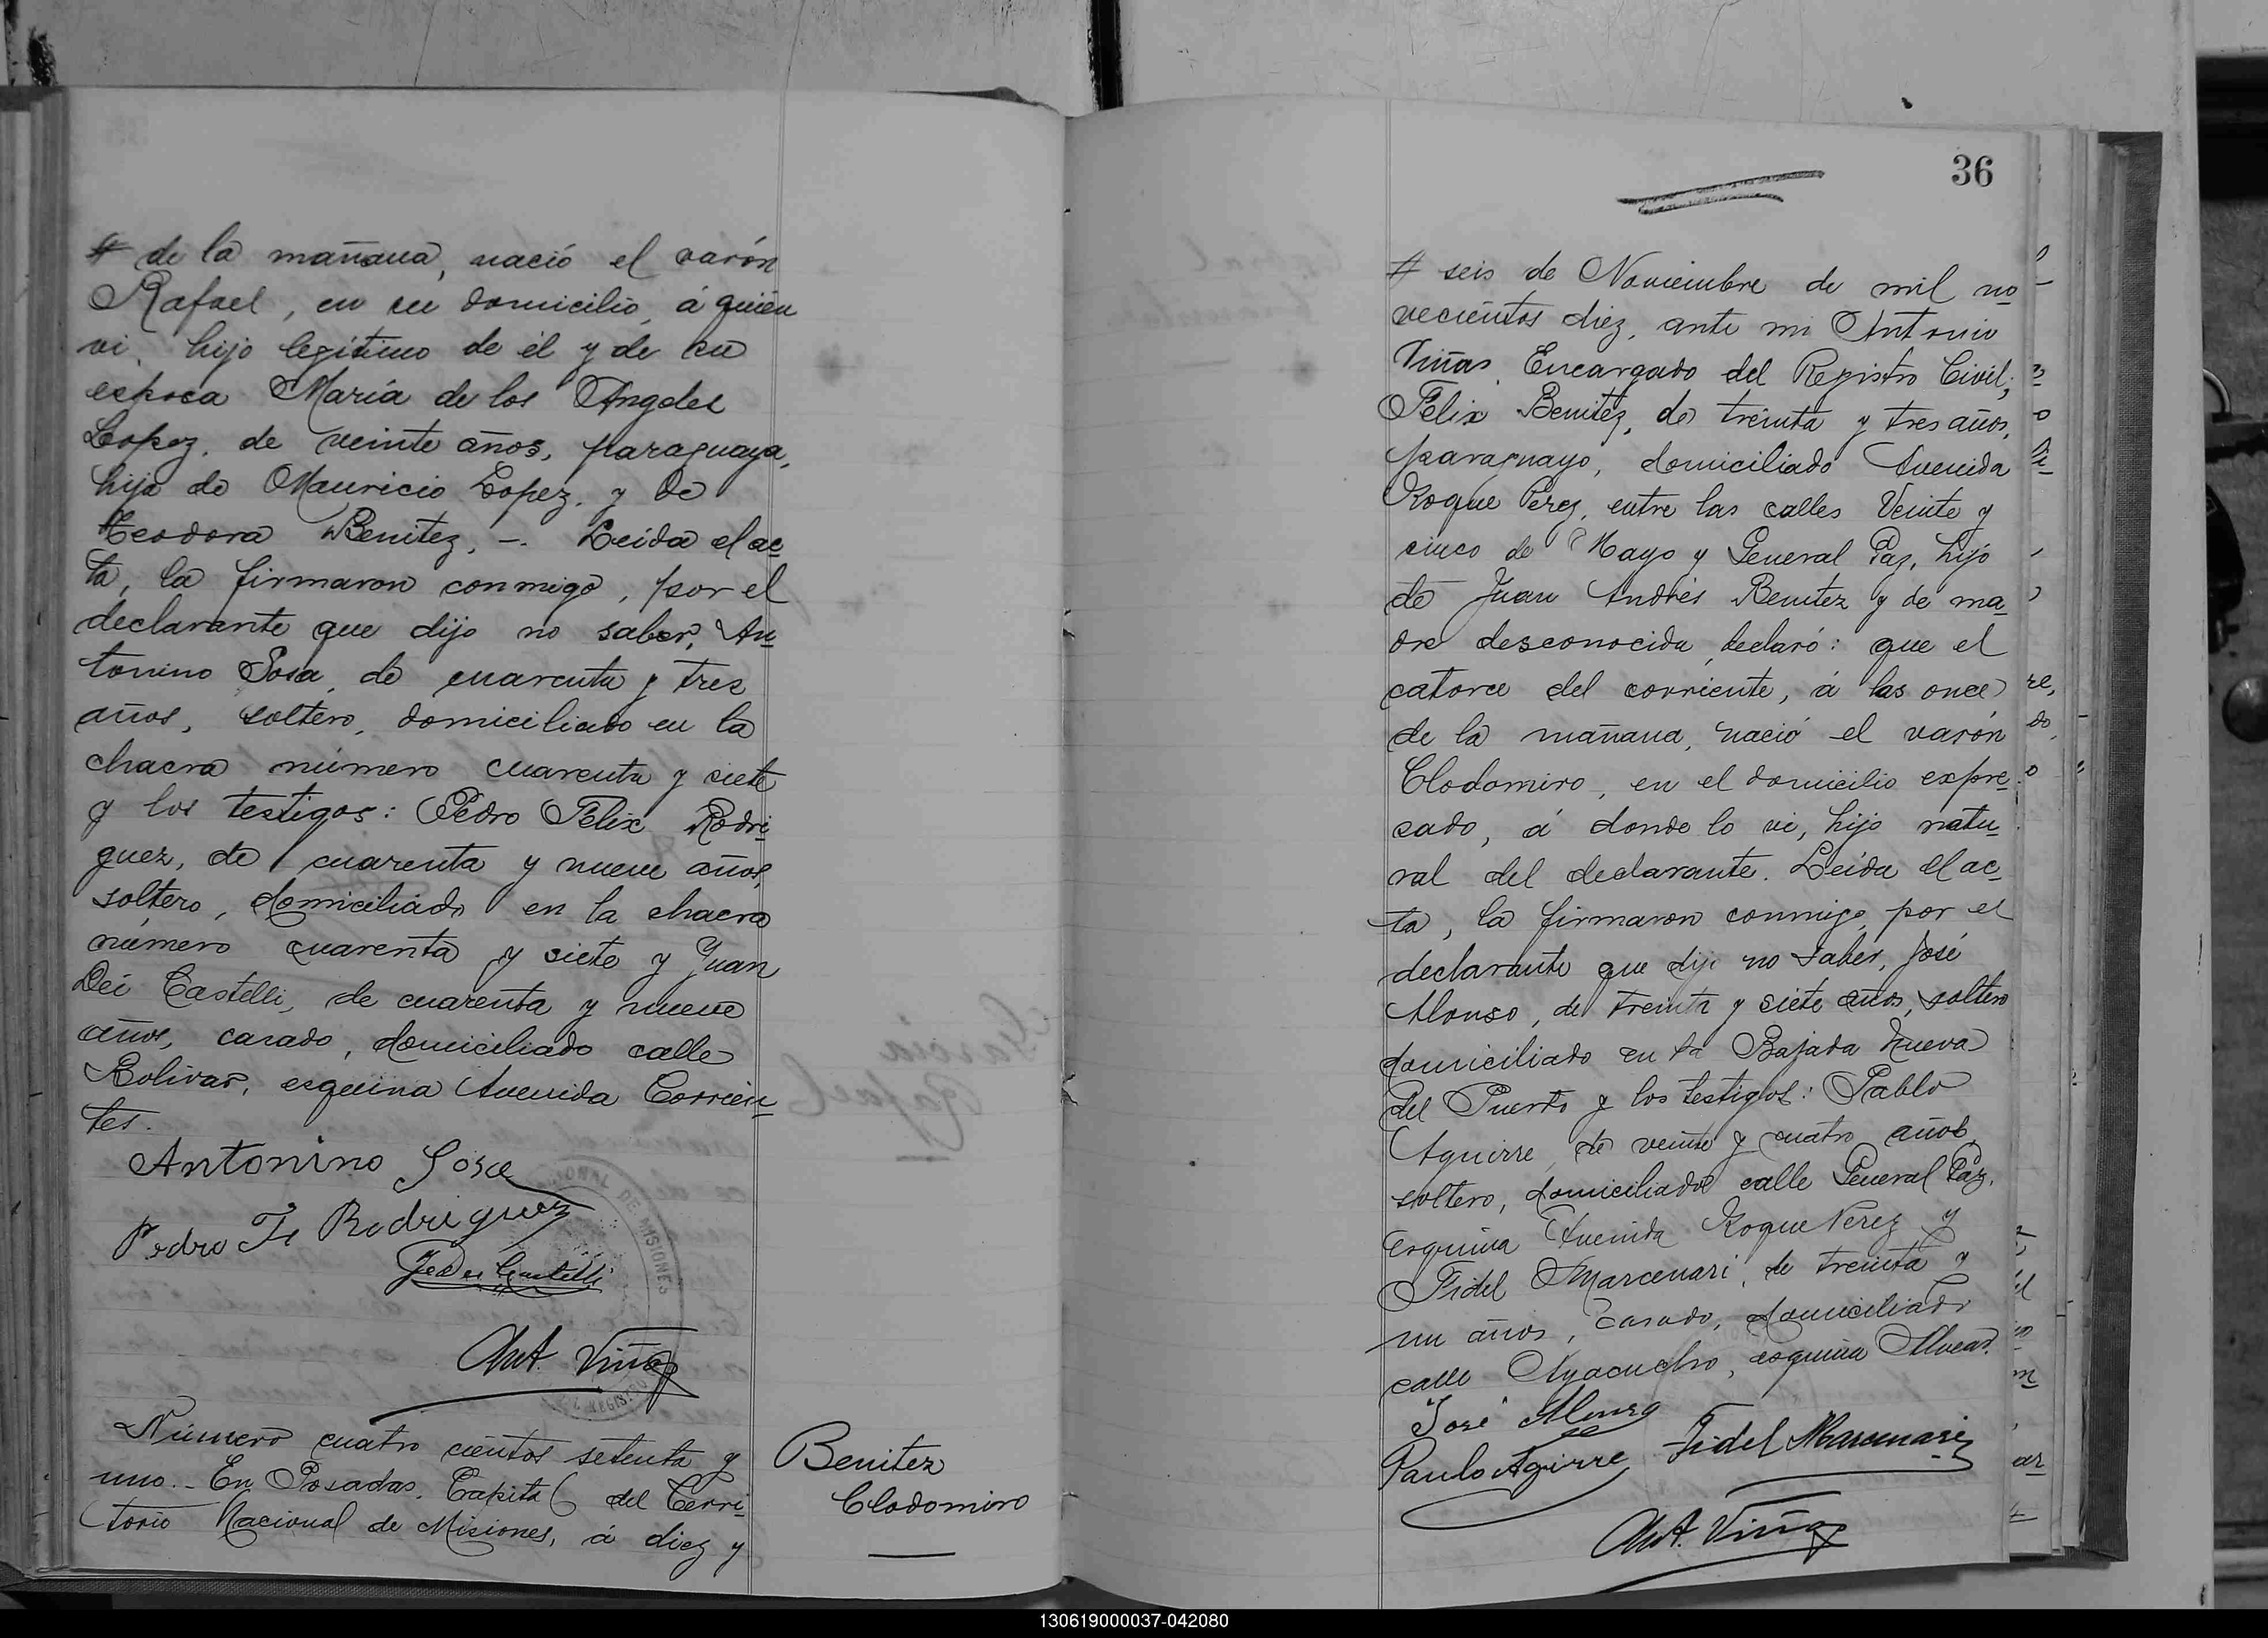 # de la mañana, nació el varón
Rafael, en su domicilio, á quién
vi, hijo legítimo de él y de su
esposa María de los Angeles
Lopez, de veinte años, paraguaya,
hija de Mauricio Lopez, y de
Teodora Benitez, -. Leida el ac
ta, la firmaron conmigo, por el
declarante que dijo no saber, An
tonino Sosa, de cuarenta y tres
años, soltero, domiciliado en la
chacra número cuarenta y siete
y los testigos: Pedro Felix Rodri
guez, de cuarenta y nueve años,
soltero, domiciliado en la chacra
número cuarenta y siete y Juan
Dei Castelli, de cuarenta y nueve
años, casado, domiciliado calle
Bolivar, esquina Avenida Corrien
tes.
Antonino Sosa
Pedro F. Rodriguez
J. Dei Castelli
Ant. Viñas
Número cuatro cientos setenta y
uno.- En Posadas, Capital del Terri
torio Nacional de Misiones, á diez y
Benitez
Clodomiro
36
# seis de Noviembre de mil no
vecientos diez, ante mi Antonio
Viñas, Encargado del Registro Civil,
Felix Benitez, de treinta y tres años,
paraguayo, domiciliado Avenida
Roque Perez, entre las calles Veinte y
cinco de Mayo y General Paz, hijo
de Juan Andrés Benitez y de ma
dre desconocida, declaró: que el
catorce del corriente, á las once
de la mañana, nació el varón
Clodomiro, en el domicilio expre
sado, á donde lo vi, hijo natu
ral del declarante. Leida el ac
ta, la firmaron conmigo, por el
declarante que dijo no saber, José
Alonso, de treinta y siete años, soltero
domiciliado en la Bajada Nueva
del Puerto y los testigos: Pablo
Aguirre, de veinte y cuatro años,
soltero, domiciliado calle General Paz,
esquina Avenida Roque Perez y
Fidel Marcenari, de treinta y
un años, casado, domiciliado
calle Ayacucho, esquina Alvear.
José Alonso
Paulo Agirre Fidel Marcenari
Ant. Viñas
130619000037-042080